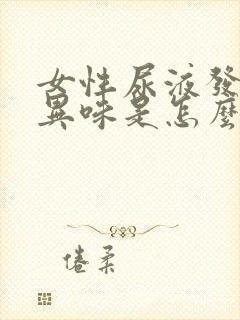 女性尿液發
異味是怎麼
倦柔